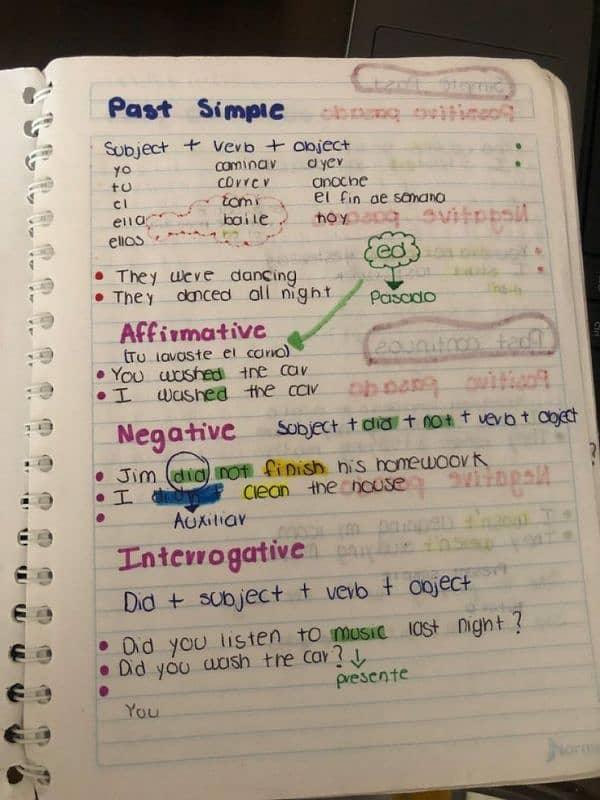 Past Simple
Subject + verb + object
yo caminar ayer
tu correr anoche
el comi el fin de semana
ella baile hoy
ellos
ed
• They were dancing
• They danced all night
Pasado
Affirmative
(Tu lavaste el carro)
• You washed the car
• I washed the car
Negative Subject + did + not + verb + object
• Jim did not finish his homewoork
• I didn't clean the house
Auxiliar
Interrogative
Did + subject + verb + object
• Did you listen to music last night?
• Did you wash the car?
presente
You
Norma